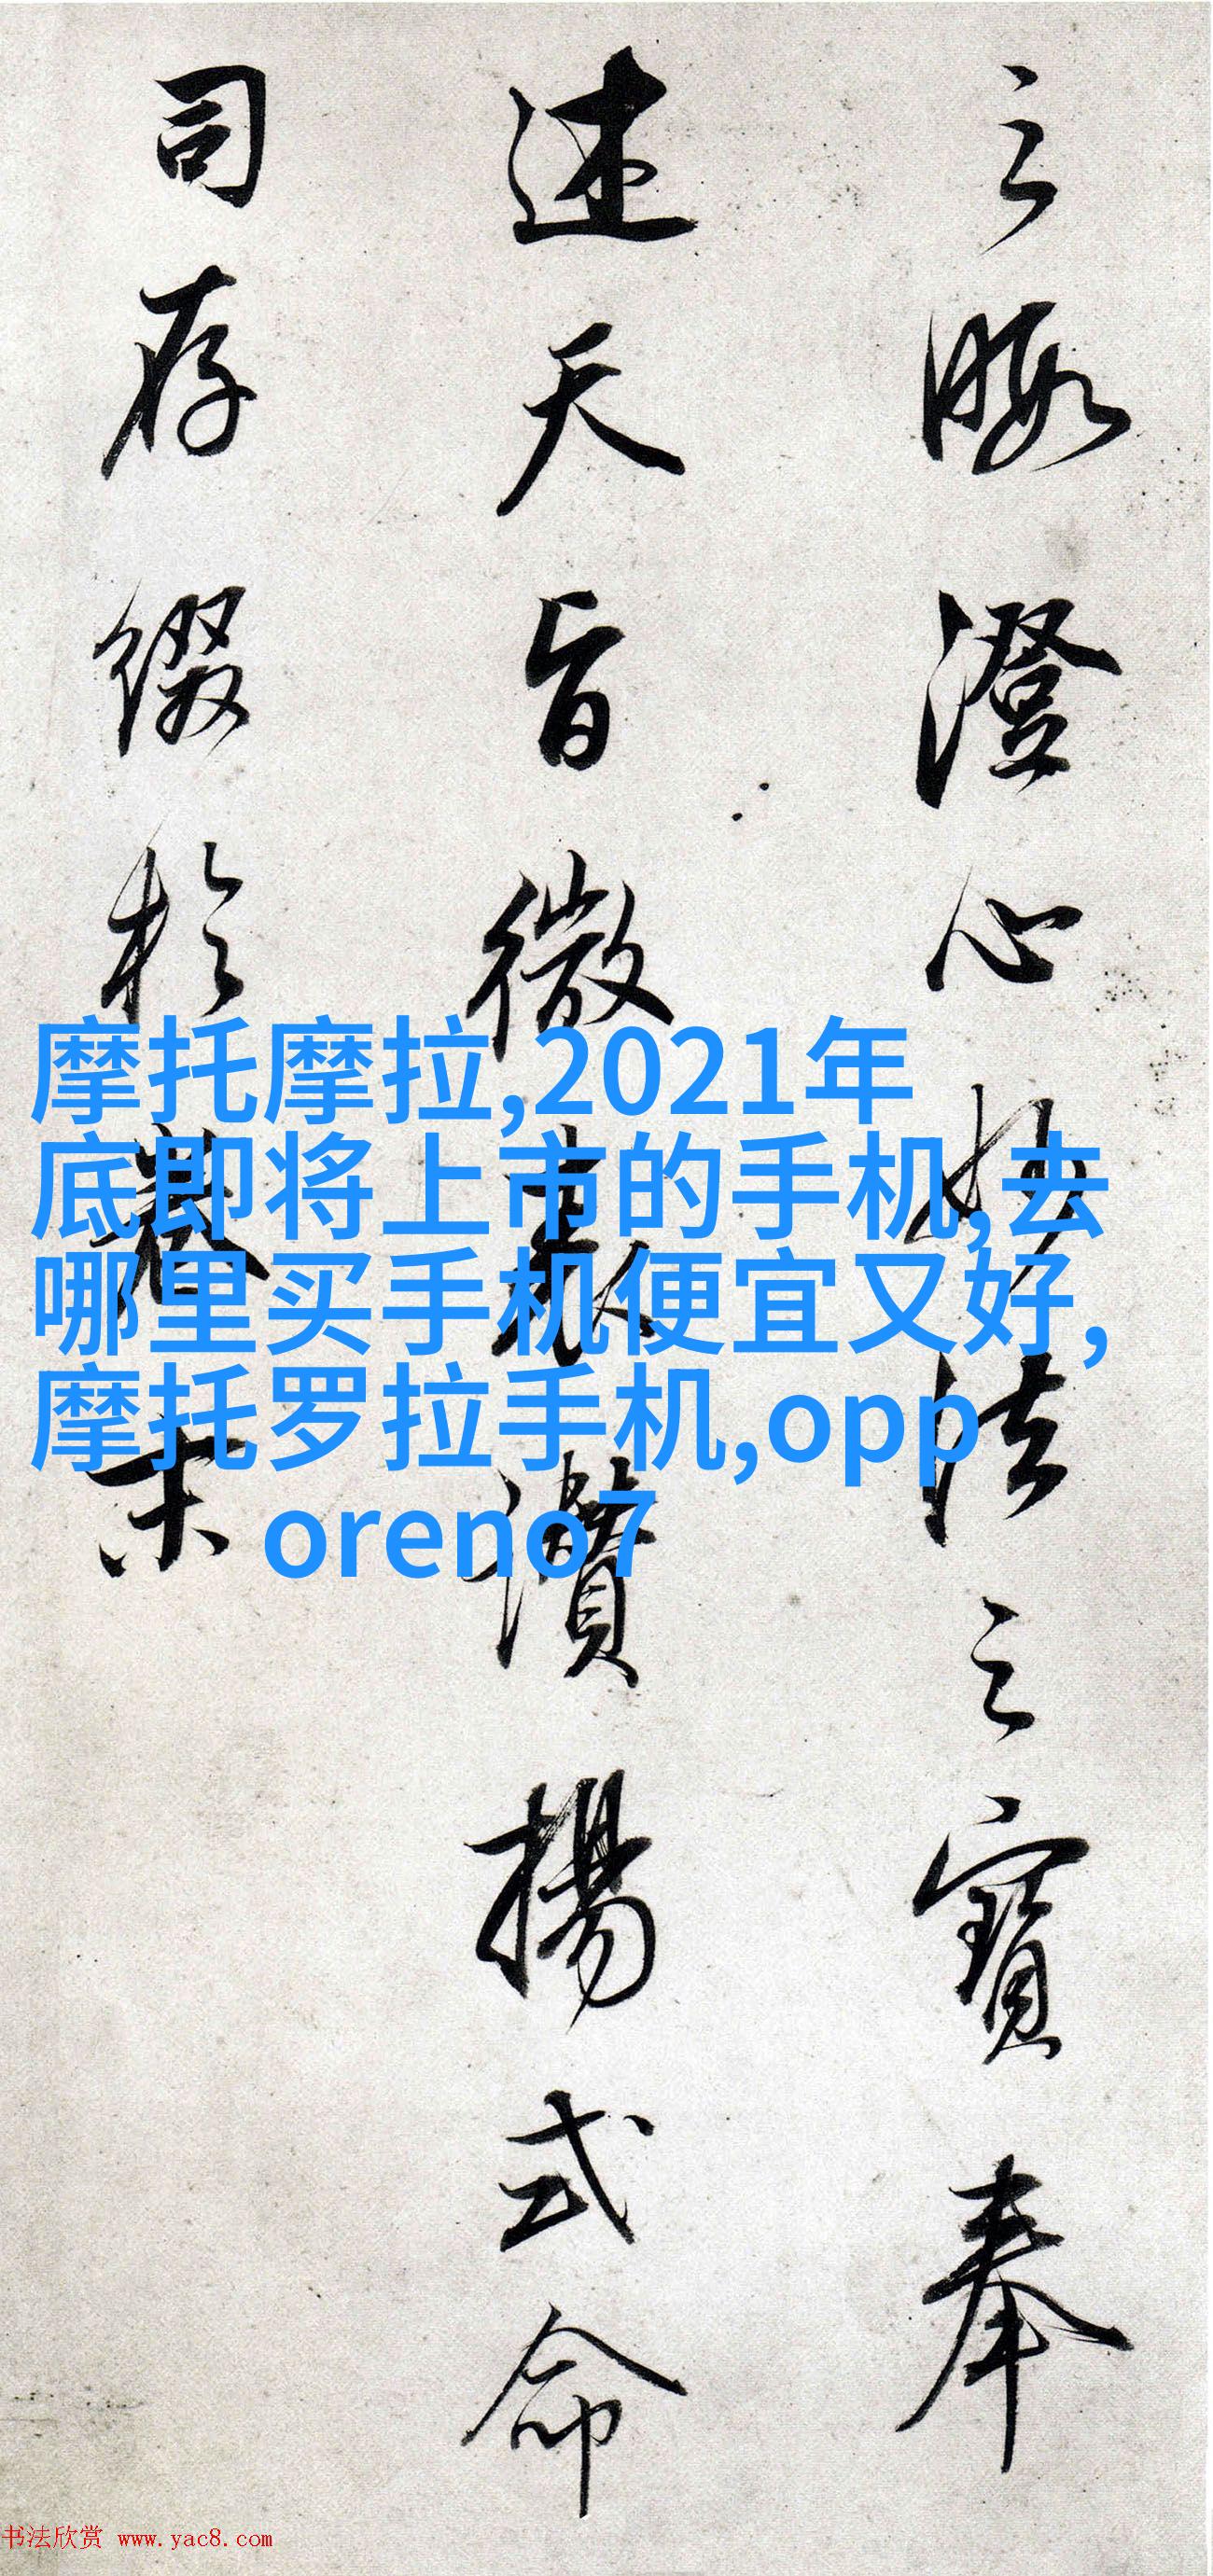 之暇澄心妙法之寶奉
述天旨微衷讚揚式命
司存缀於卷末
摩托摩拉,2021年
底即将上市的手机,去
哪里买手机便宜又好,
摩托罗拉手机,opp
oreno7
书法欣赏 www.yac8.com